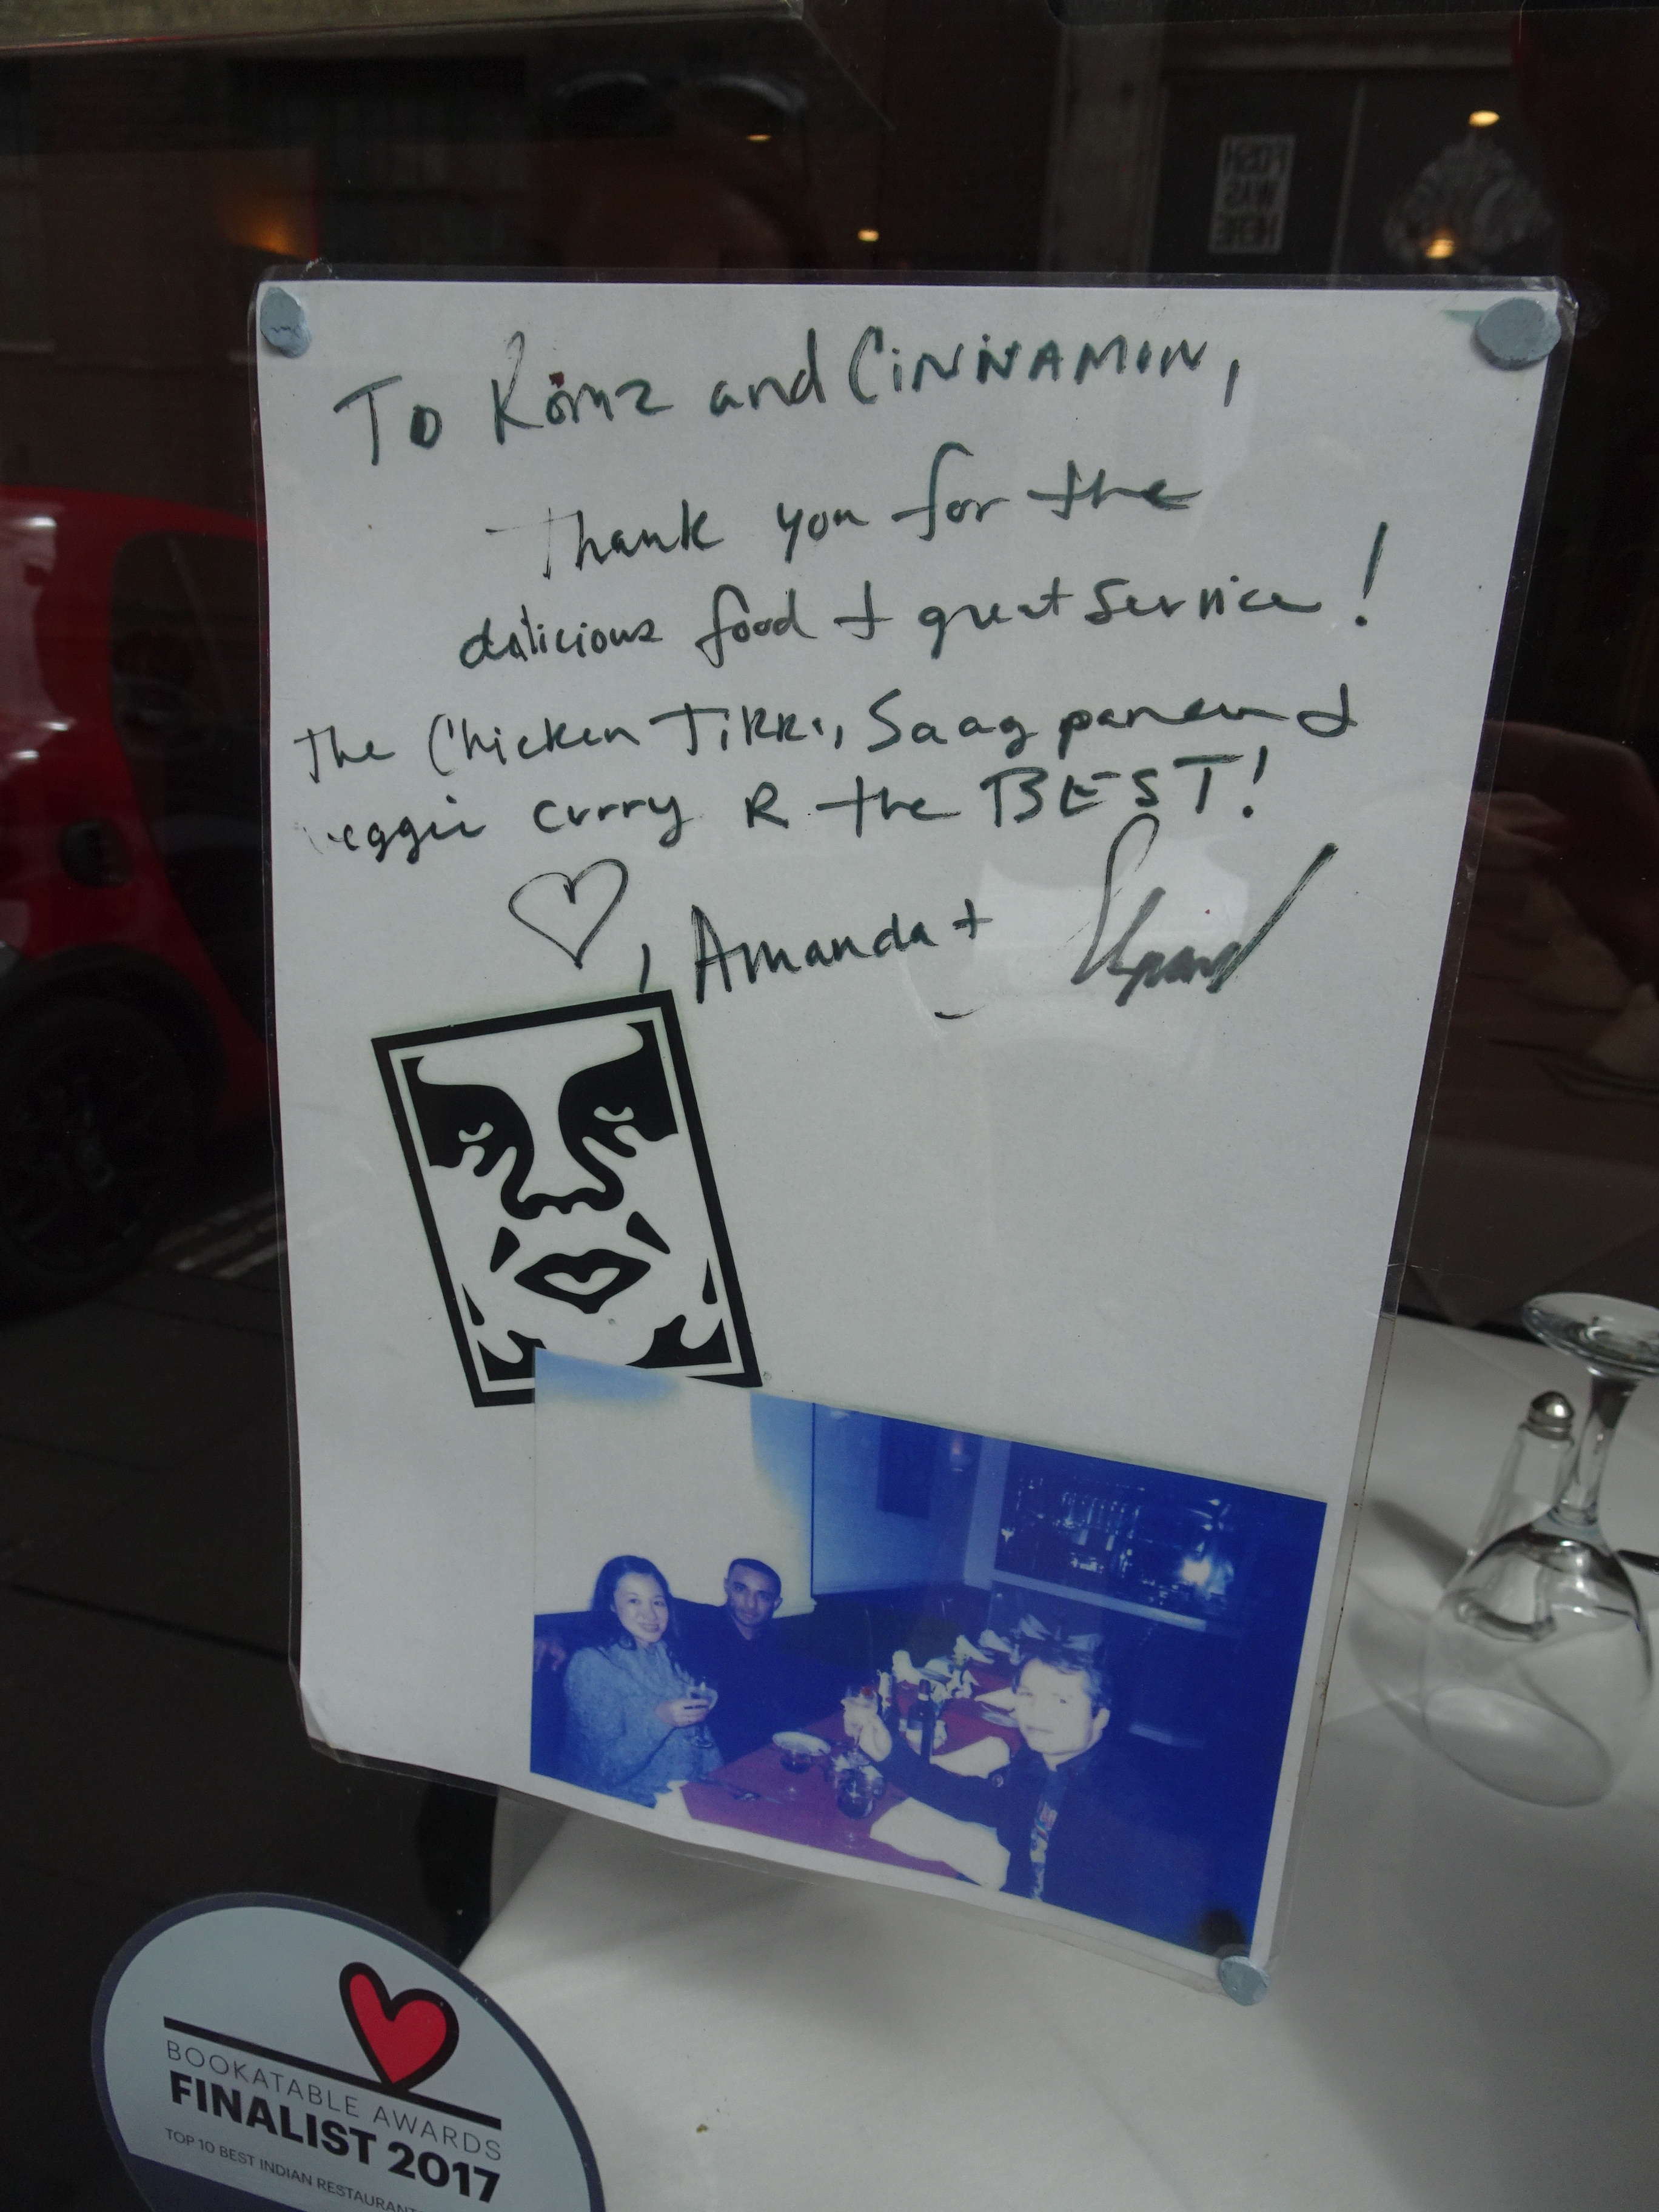 To Romz and CINNAMON,
Thank you for the
delicious food + great service!
The Chicken TIKKI, Saag paneer +
veggie curry R the BEST!
, Amanda +
BOOKATABLE AWARDS
FINALIST 2017
TOP 10 BEST INDIAN RESTAURANT